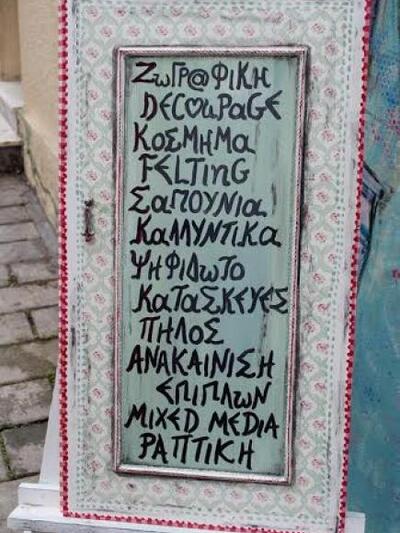 ΖωΓΡ@ΦΙΚΗ
DEC♡upaGE
ΚΟΣΜΗΜα
FELTING
ΣαΠΟΥΝΙα
ΚαΛΛΥΝΤΙΚα
ΨΗΦΙΔωΤο
ΚαΤαΣΚΕΥΕΣ
ΠΗΛΟΣ
ΑΝΑΚΑΙΝΙΣΗ
ΕΠΙΠΛΩΝ
MIXED MEDIA
ΡΑΠΤΙΚΗ